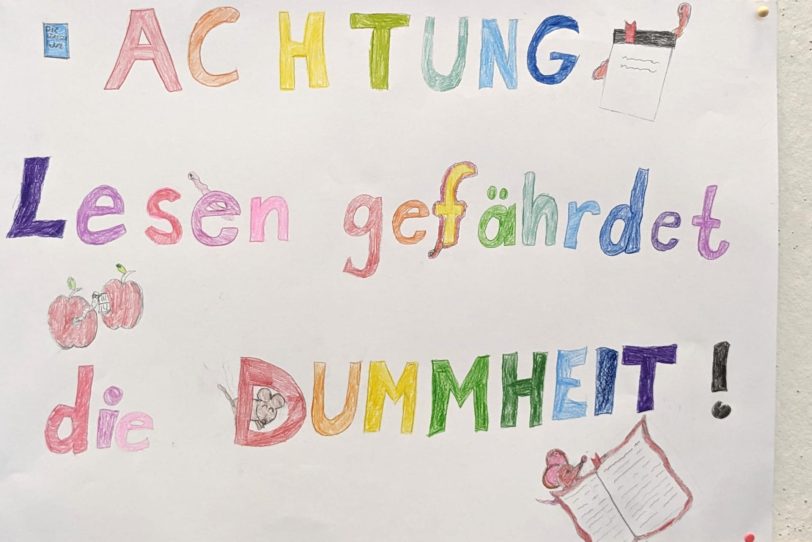 ACHTUNG
Lesen gefährdet
die DUMMHEIT!